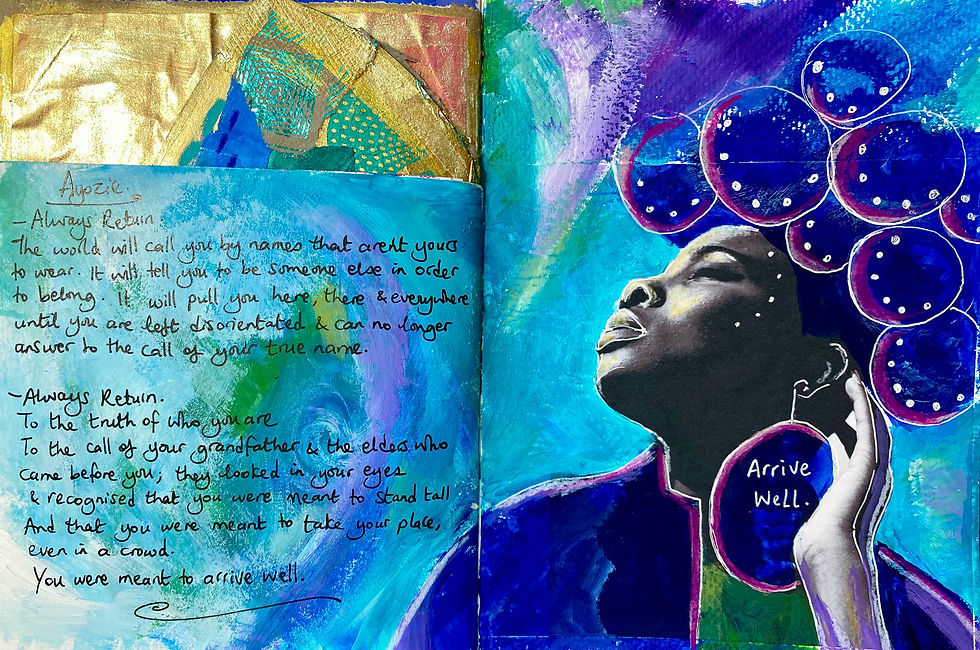 Ayozie.
- Always Return.
The world will call you by names that aren't yours
to wear. It will tell you to be someone else in order
to belong. It will pull you here, there & everywhere
until you are left disorientated & can no longer
answer to the call of your true name.
- Always Return.
To the truth of who you are
To the call of your grandfather & the elders who
came before you; they looked in your eyes
& recognised that you were meant to stand tall
And that you were meant to take your place,
even in a crowd.
You were meant to arrive well.
Arrive
Well.